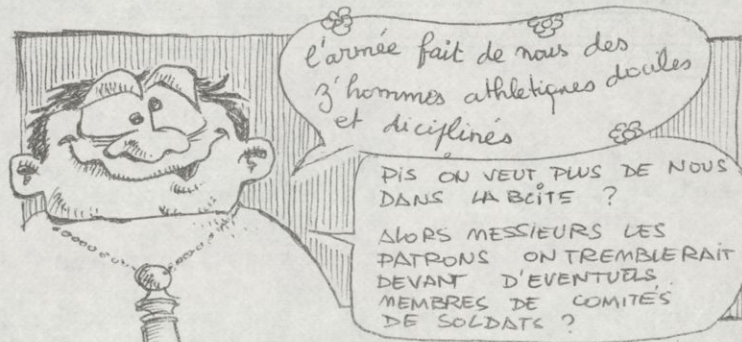 l'armée fait de nous des
3'hommes athletiques dociles
et diciplinés
PIS ON VEUT PLUS DE NOUS
DANS LA BOÎTE ?
ALORS MESSIEURS LES
PATRONS ON TREMBLERAIT
DEVANT D'EVENTUELS
MEMBRES DE COMITÉS
DE SOLDATS ?